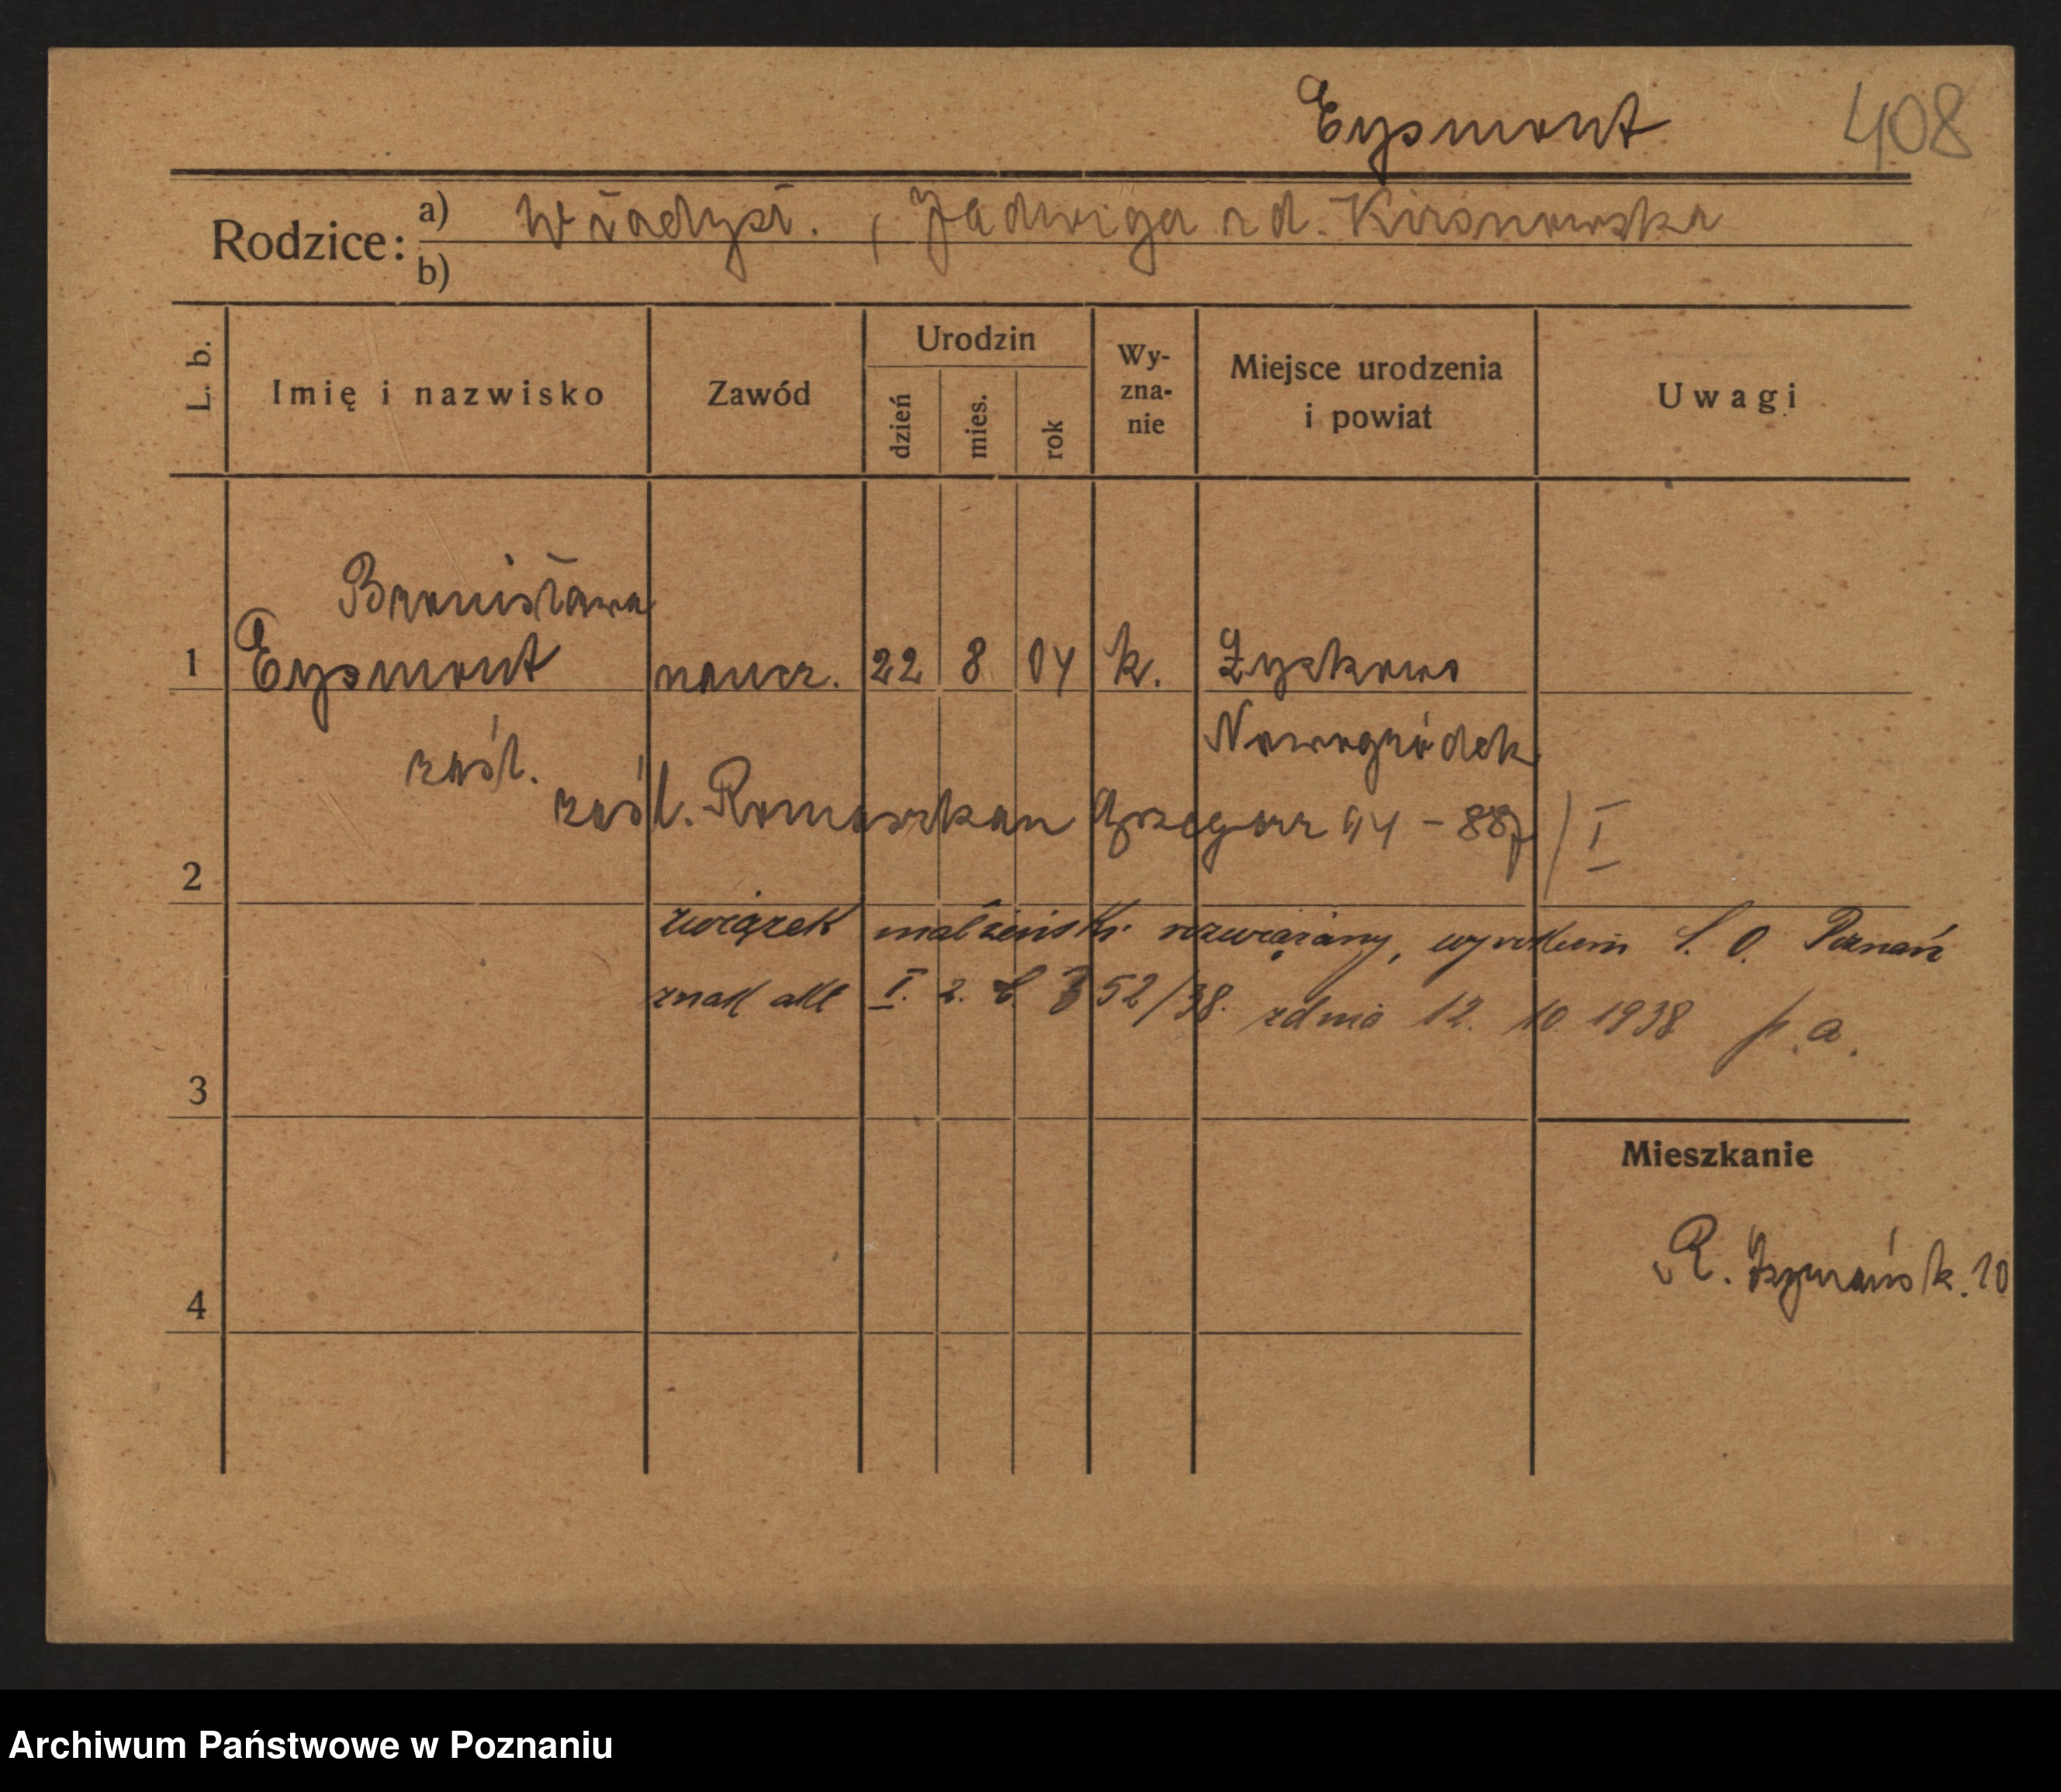 Eysmont 408
Rodzice: a) Władysł. , Jadwiga zd. Kirsnowska
b)
L. b. Imię i nazwisko Zawód Urodzin dzień mies. rok Wy-zna-nie Miejsce urodzenia i powiat Uwagi
Bronisława
1 Eysmont naucz. 22 8 04 k. Zyskowo
Nowogródek
zaśl.
zaśl. Romaszkan Grzegorz 94 - 887 / I
2
związek małżeński rozwiązany, wyrokiem S. O. Poznań
znak akt I. 2. C. 352/38. zdnia 12. 10. 1938 p. a.
3
Mieszkanie
R. Szymańsk. 10
4
Archiwum Państwowe w Poznaniu